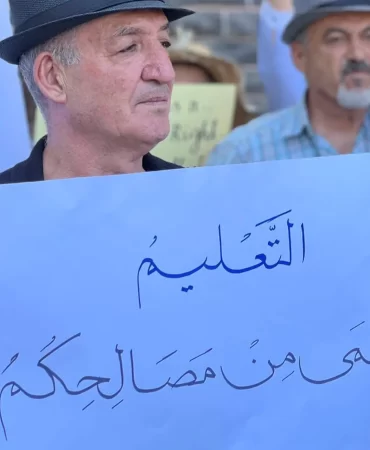 Right
التَّعْلِيمُ
مِنْ مَصَالِحِكُمُ